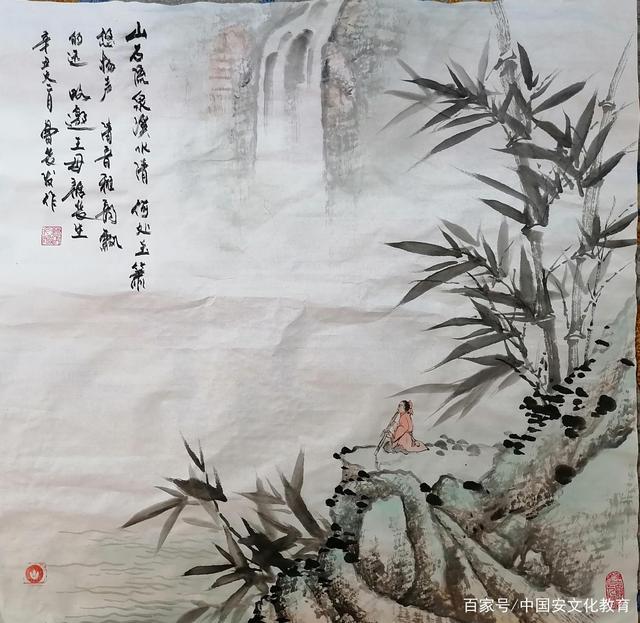 山石流泉溪水清 何处玉箫
悠扬声 清音雅韵飘
的远 邀王母話長生
辛丑 月 作
百家号/中国安文化教育